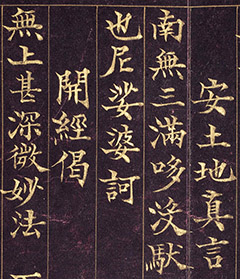 安土地真言
南無三滿哆沒䭾
也尼娑婆訶
開經偈
無上甚深微妙法